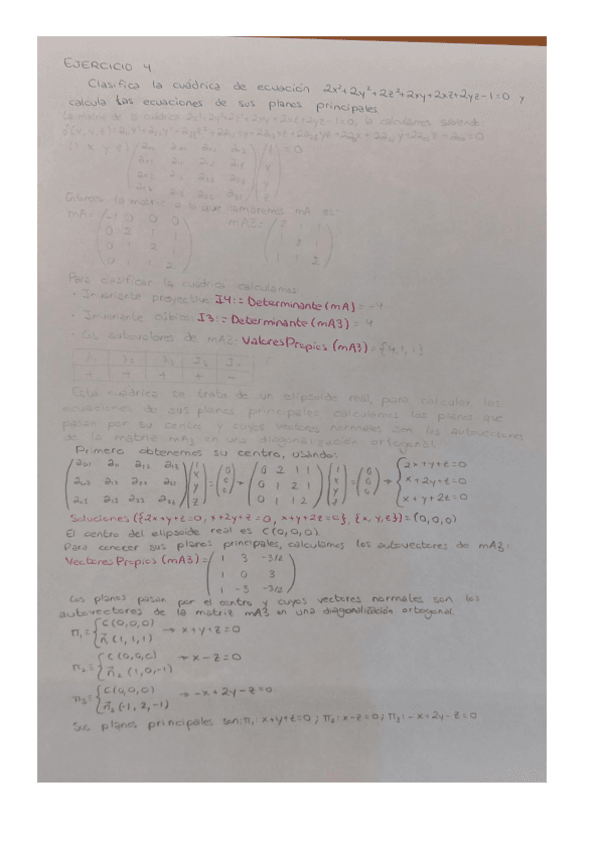 EJERCICIO 4
Clasifica la cuádrica de ecuación 2x²+2y²+2z²+2xy+2xz+2yz-1=0 y
calcula las ecuaciones de sus planos principales.
La matriz de la cuádrica 2x²+2y²+2z²+2xy+2xz+2yz-1=0, la calculamos sabiendo:
mA= (-1 0 0 0 mA3= (2 1 1
0 2 1 1 1 2 1
0 1 2 1 1 1 2)
0 1 1 2)
Para clasificar la cuádrica calculamos:
- Invariante proyectivo: I4:= Determinante (mA) = -4
- Invariante cúbico: I3:= Determinante (mA3) = 4
- Los autovalores de mA3: Valores Propios (mA3) = {4,1,1}
+ + + + -
Esta cuádrica se trata de un elipsoide real, para calcular las
ecuaciones de sus planos principales calculamos los planos que
pasan por su centro y cuyos vectores normales son los autovectores
de la matriz mA3 en una diagonalización ortogonal.
Primero obtenemos su centro, usando:
(0 2 1 1 {2x+y+z=0
0 1 2 1 x+2y+z=0
0 1 1 2) x+y+2z=0
Soluciones ({2x+y+z=0, x+2y+z=0, x+y+2z=0}, {x,y,z}) = (0,0,0)
El centro del elipsoide real es C(0,0,0).
Para conocer sus planos principales, calculamos los autovectores de mA3:
Vectores Propios (mA3) = (1 3 -3/2
1 0 3
1 -3 -3/2)
Los planos pasan por el centro y cuyos vectores normales son los
autovectores de la matriz mA3 en una diagonalización ortogonal.
π₁={C(0,0,0)
n̄ (1,1,1) → x+y+z=0
π₂={C(0,0,0) → x-z=0
n̄₂ (1,0,-1)
π₃={C(0,0,0) → -x+2y-z=0
n̄₃ (-1,2,-1)
Sus planos principales son: π₁: x+y+z=0; π₂: x-z=0; π₃: -x+2y-z=0